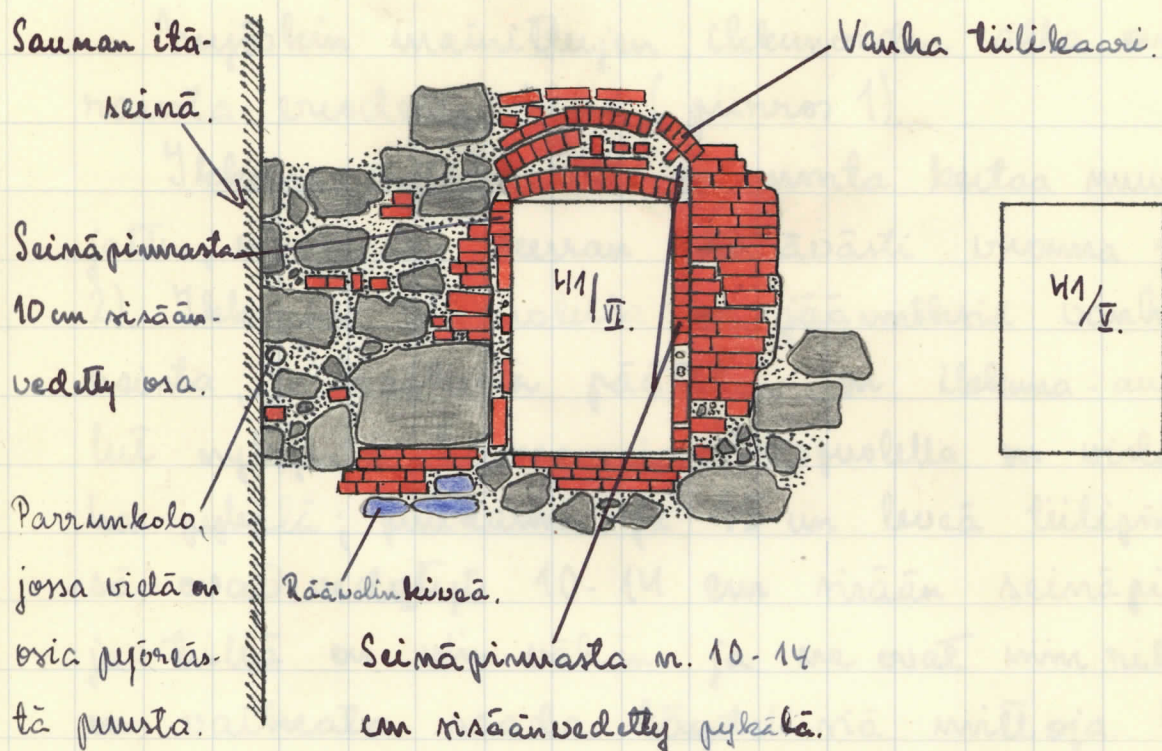 Sauman itä-
seinä.
Vanha tiilikaari.
Seinäpinnasta
10 cm sisään-
vedetty osa.
41/VI.
41/V.
Parrunkolo,
jossa vielä on
osia pyöreäs-
tä puusta.
Räävelinkiveä.
Seinäpinnasta n. 10-14
cm sisäänvedetty pykälä.